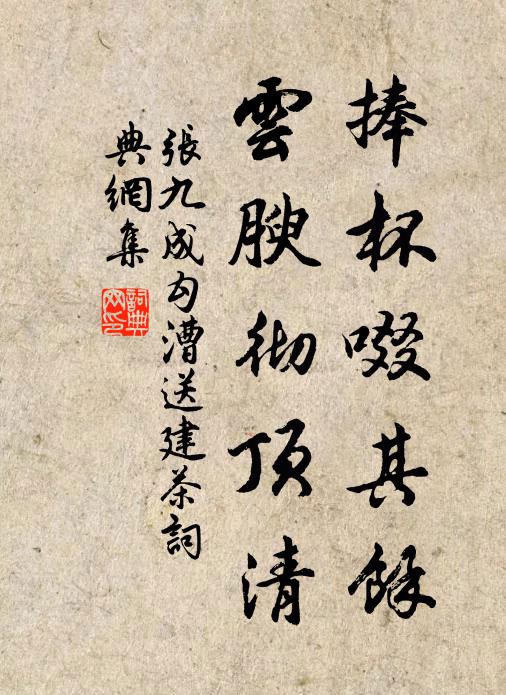 捧杯啜其餘
雲腴彻頂清
張九成勾漕送建茶詞
典網集
詞典網印